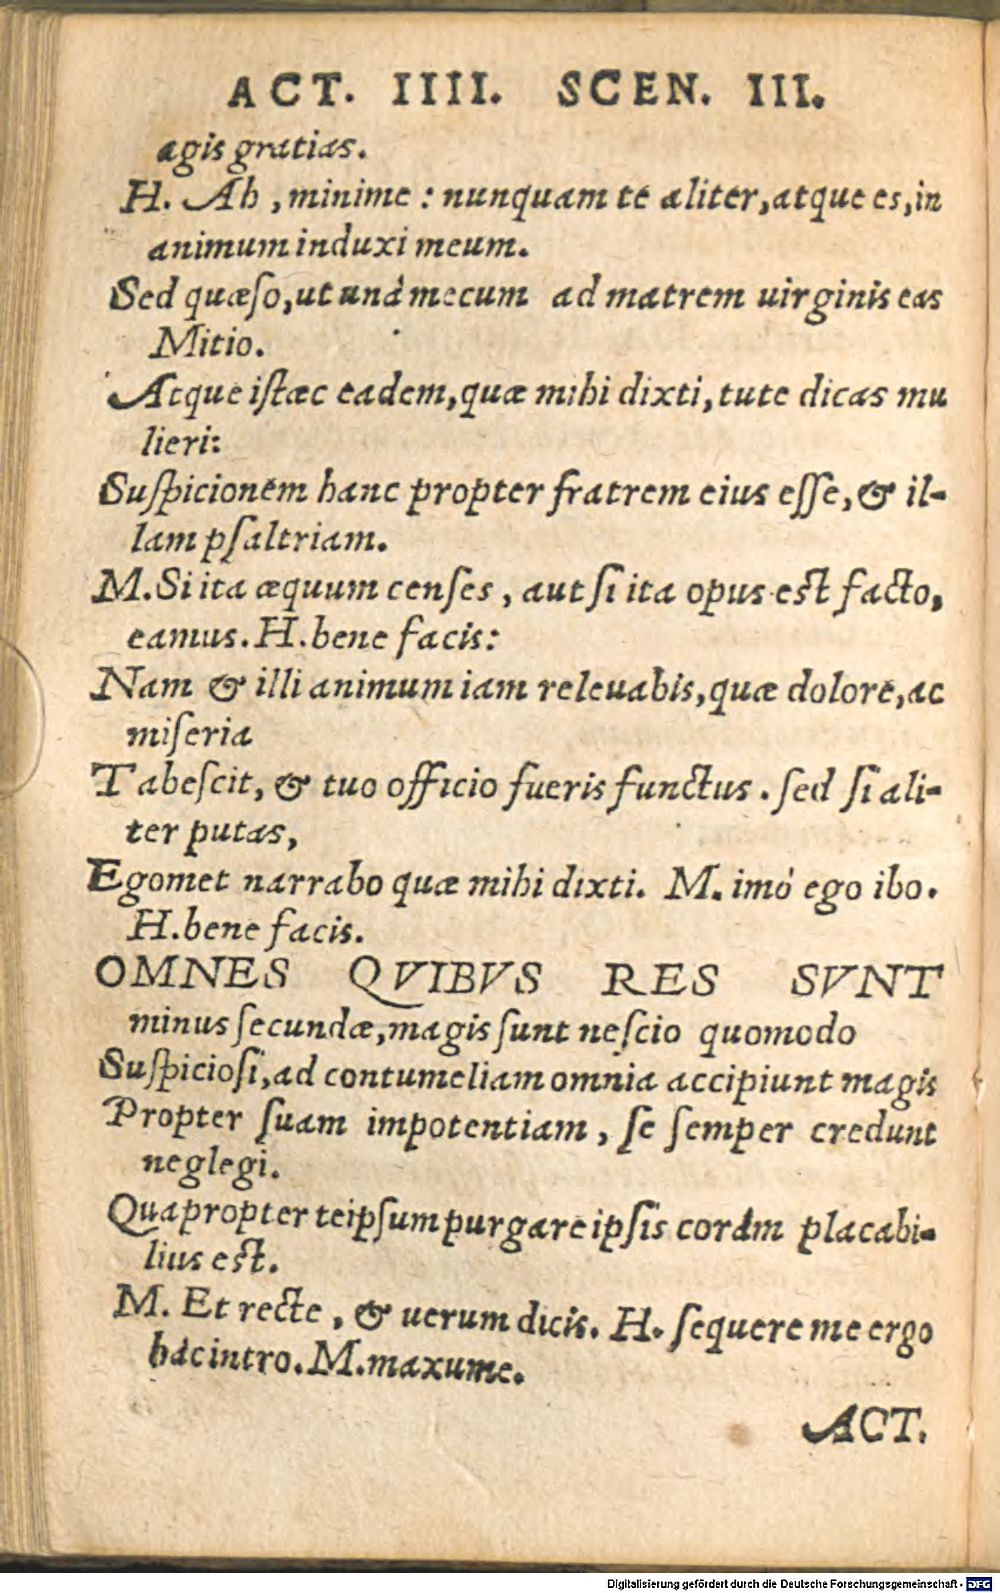 ACT. IIII. SCEN. III.
agis gratias.
H. Ah, minime: nunquam te aliter, atque es, in
animum induxi meum.
Sed quæſo, ut unà mecum ad matrem uirginis eas
Mitio.
Atque iſtæc eadem, quæ mihi dixti, tute dicas mu
lieri:
Suſpicionem hanc propter fratrem eius eſſe, & il-
lam pſaltriam.
M. Si ita æquum cenſes, aut ſi ita opus eſt facto,
eamus. H. bene facis:
Nam & illi animum iam releuabis, quæ dolore, ac
miſeria
Tabeſcit, & tuo officio fueris functus. ſed ſi ali-
ter putas,
Egomet narrabo quæ mihi dixti. M. imò ego ibo.
H. bene facis.
OMNES QVIBVS RES SVNT
minus ſecundæ, magis ſunt neſcio quomodo
Suſpicioſi, ad contumeliam omnia accipiunt magis
Propter ſuam impotentiam, ſe ſemper credunt
neglegi.
Quapropter teipſum purgare ipſis coràm placabi-
lius eſt.
M. Et recte, & uerum dicis. H. ſequere me ergo
hàc intro. M. maxume.
ACT.
Digitalisierung gefördert durch die Deutsche Forschungsgemeinschaft - DFG